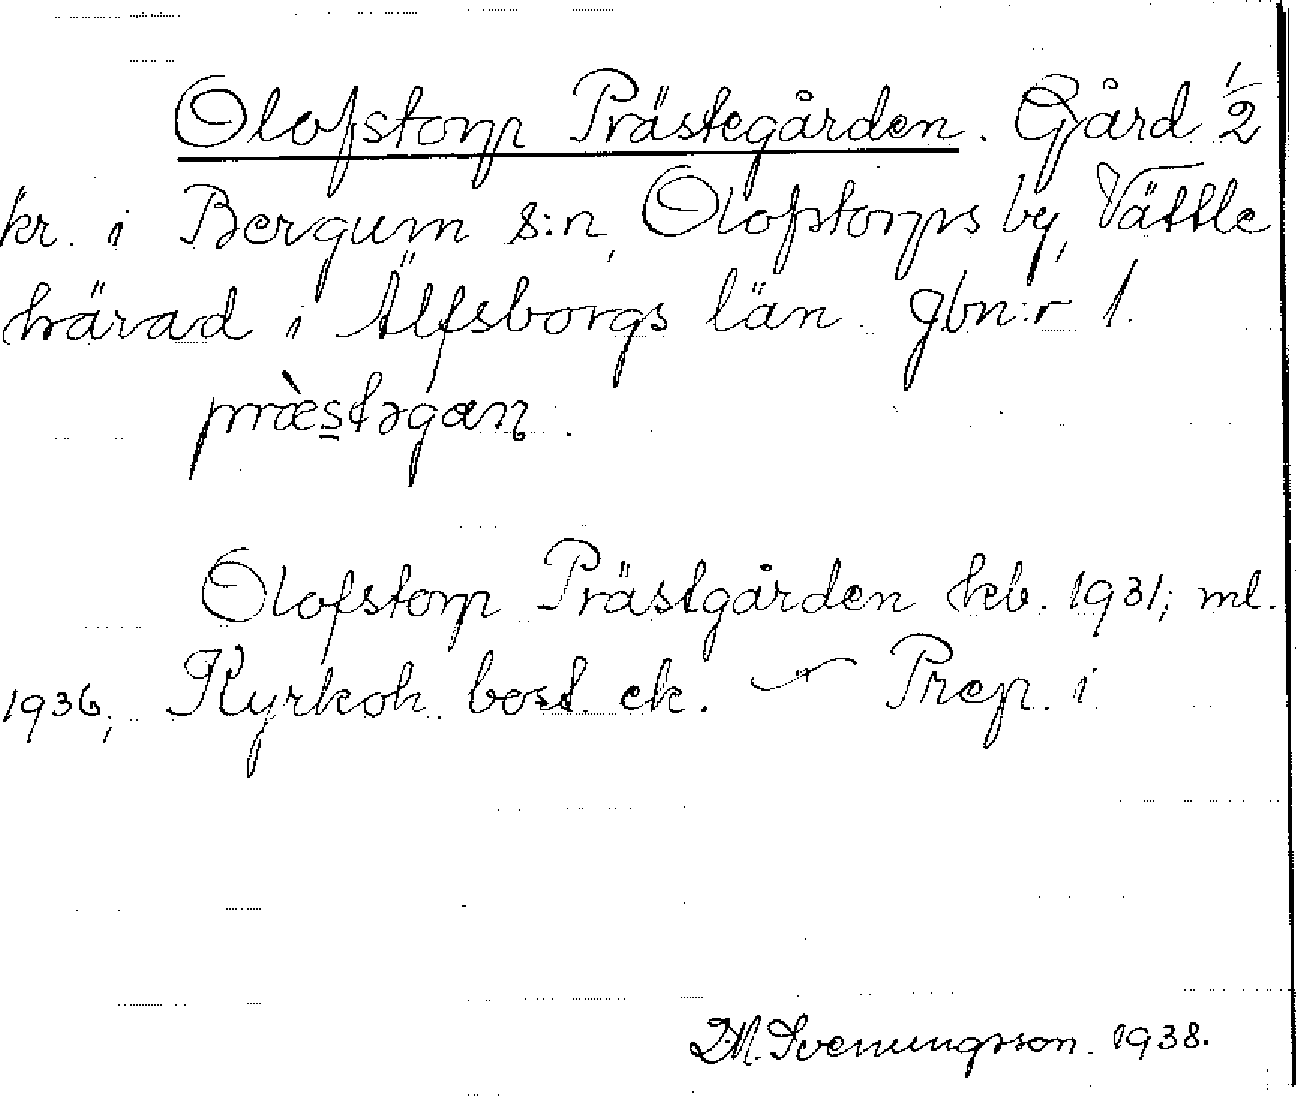 Olofstorp Prästegården. Gård 1/2
kr. i Bergum s:n, Olofstorps by, Vättle
härad i Älfsborgs län. Jbn:r 1.
præ̀stəgan.
Olofstorp Prästgården hkb. 1931; ml.
1936; Kyrkoh. bost. ek. Prep. i
D.M. Svenungsson. 1938.